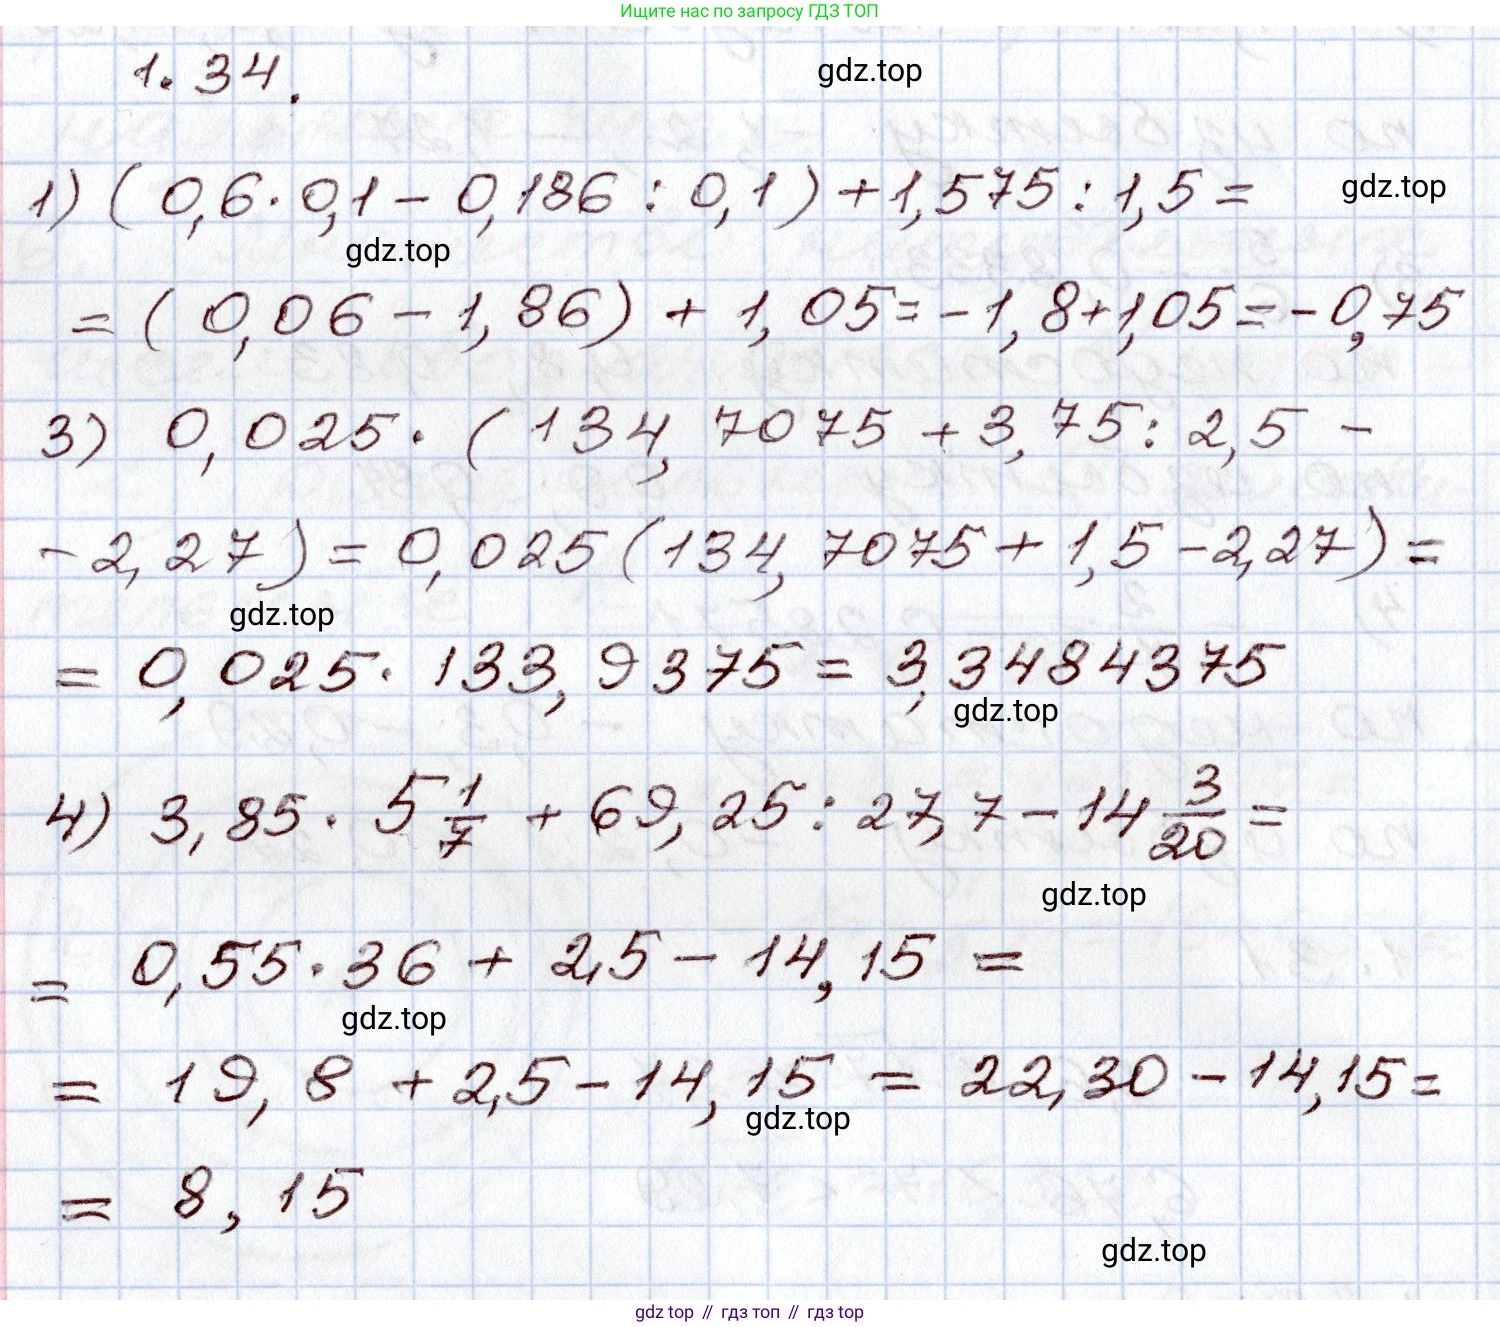 Ищите нас по запросу ГДЗ ТОП
1.34.
gdz.top
1) (0,6·0,1-0,186:0,1)+1,575:1,5=
gdz.top
gdz.top
=(0,06-1,86)+1,05=-1,8+1,05=-0,75
3) 0,025·(134,7075+3,75:2,5-
-2,27)=0,025(134,7075+1,5-2,27)=
gdz.top
=0,025·133,9375=3,3484375
gdz.top
4) 3,85·5 1/7+69,25:27,7-14 3/20=
gdz.top
=0,55·36+2,5-14,15=
gdz.top
=19,8+2,5-14,15=22,30-14,15=
gdz.top
=8,15
gdz.top
gdz top // гдз топ // гдз top